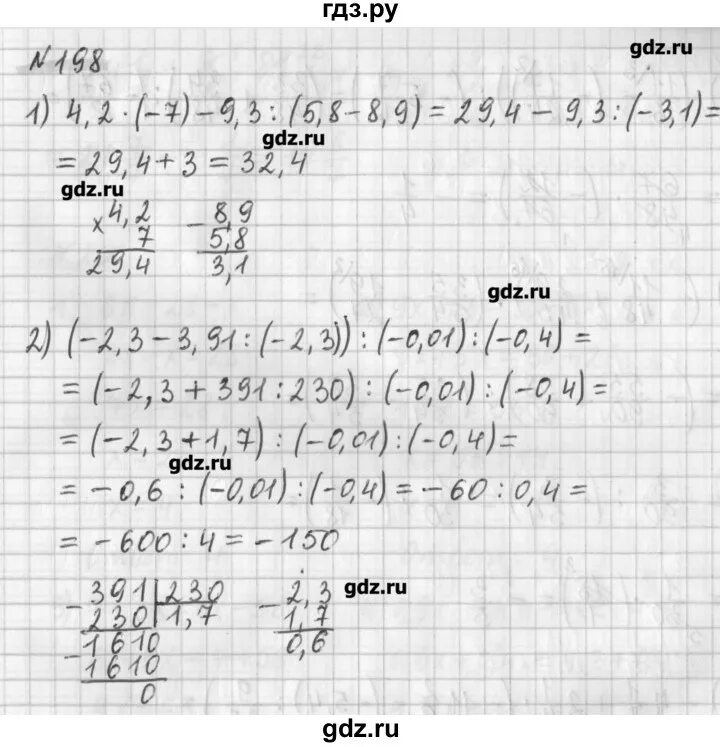 гдз.ру
gdz.ru
№198
1) 4,2 · (-7) - 9,3 : (5,8 - 8,9) = 29,4 - 9,3 : (-3,1) =
gdz.ru
= 29,4 + 3 = 32,4
gdz.ru
× 4,2
7
29,4
- 8,9
5,8
3,1
gdz.ru
2) (-2,3 - 3,91 : (-2,3)) : (-0,01) : (-0,4) =
= (-2,3 + 391 : 230) : (-0,01) : (-0,4) =
= (-2,3 + 1,7) : (-0,01) : (-0,4) =
gdz.ru
= -0,6 : (-0,01) : (-0,4) = -60 : 0,4 =
= -600 : 4 = -150
- 391 | 230
230 | 1,7
1610
- 1610
0
- 2,3
1,7
0,6
gdz.ru
gdz.ru